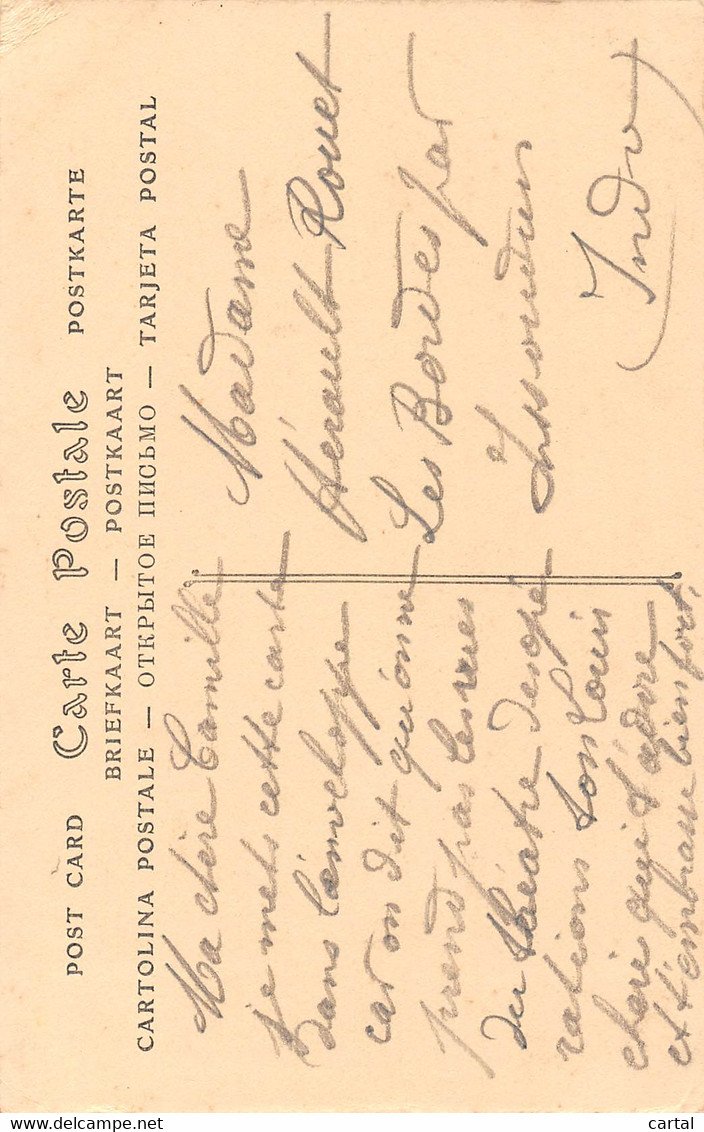 POST CARD Carte Postale POSTKARTE
BRIEFKAART — POSTKAART
CARTOLINA POSTALE — ОТКРЫТОЕ ПИСЬМО — TARJETA POSTAL
Ma chère Camille
je mets cette carte
dans l'enveloppe
car on dit qu'on ne
prend pas les vues
du théatre des opé
rations ton Louis
chéri qui t'adore
et t'embrasse bien fort.
Madame
Hérault Rouet
Les Bordes par
Issoudun
Indre
cartal